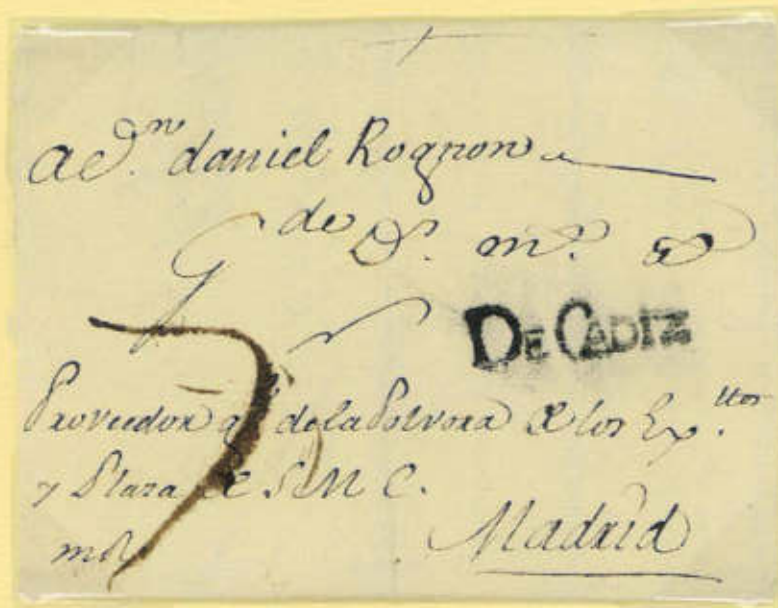 a D.ⁿ daniel Rognon
de D. m.
DE CADIZ
Proveedor g.ˡ de la Polvora de los Exp.ᵗᵒˢ
y Plaza de S. M. C.
Madrid